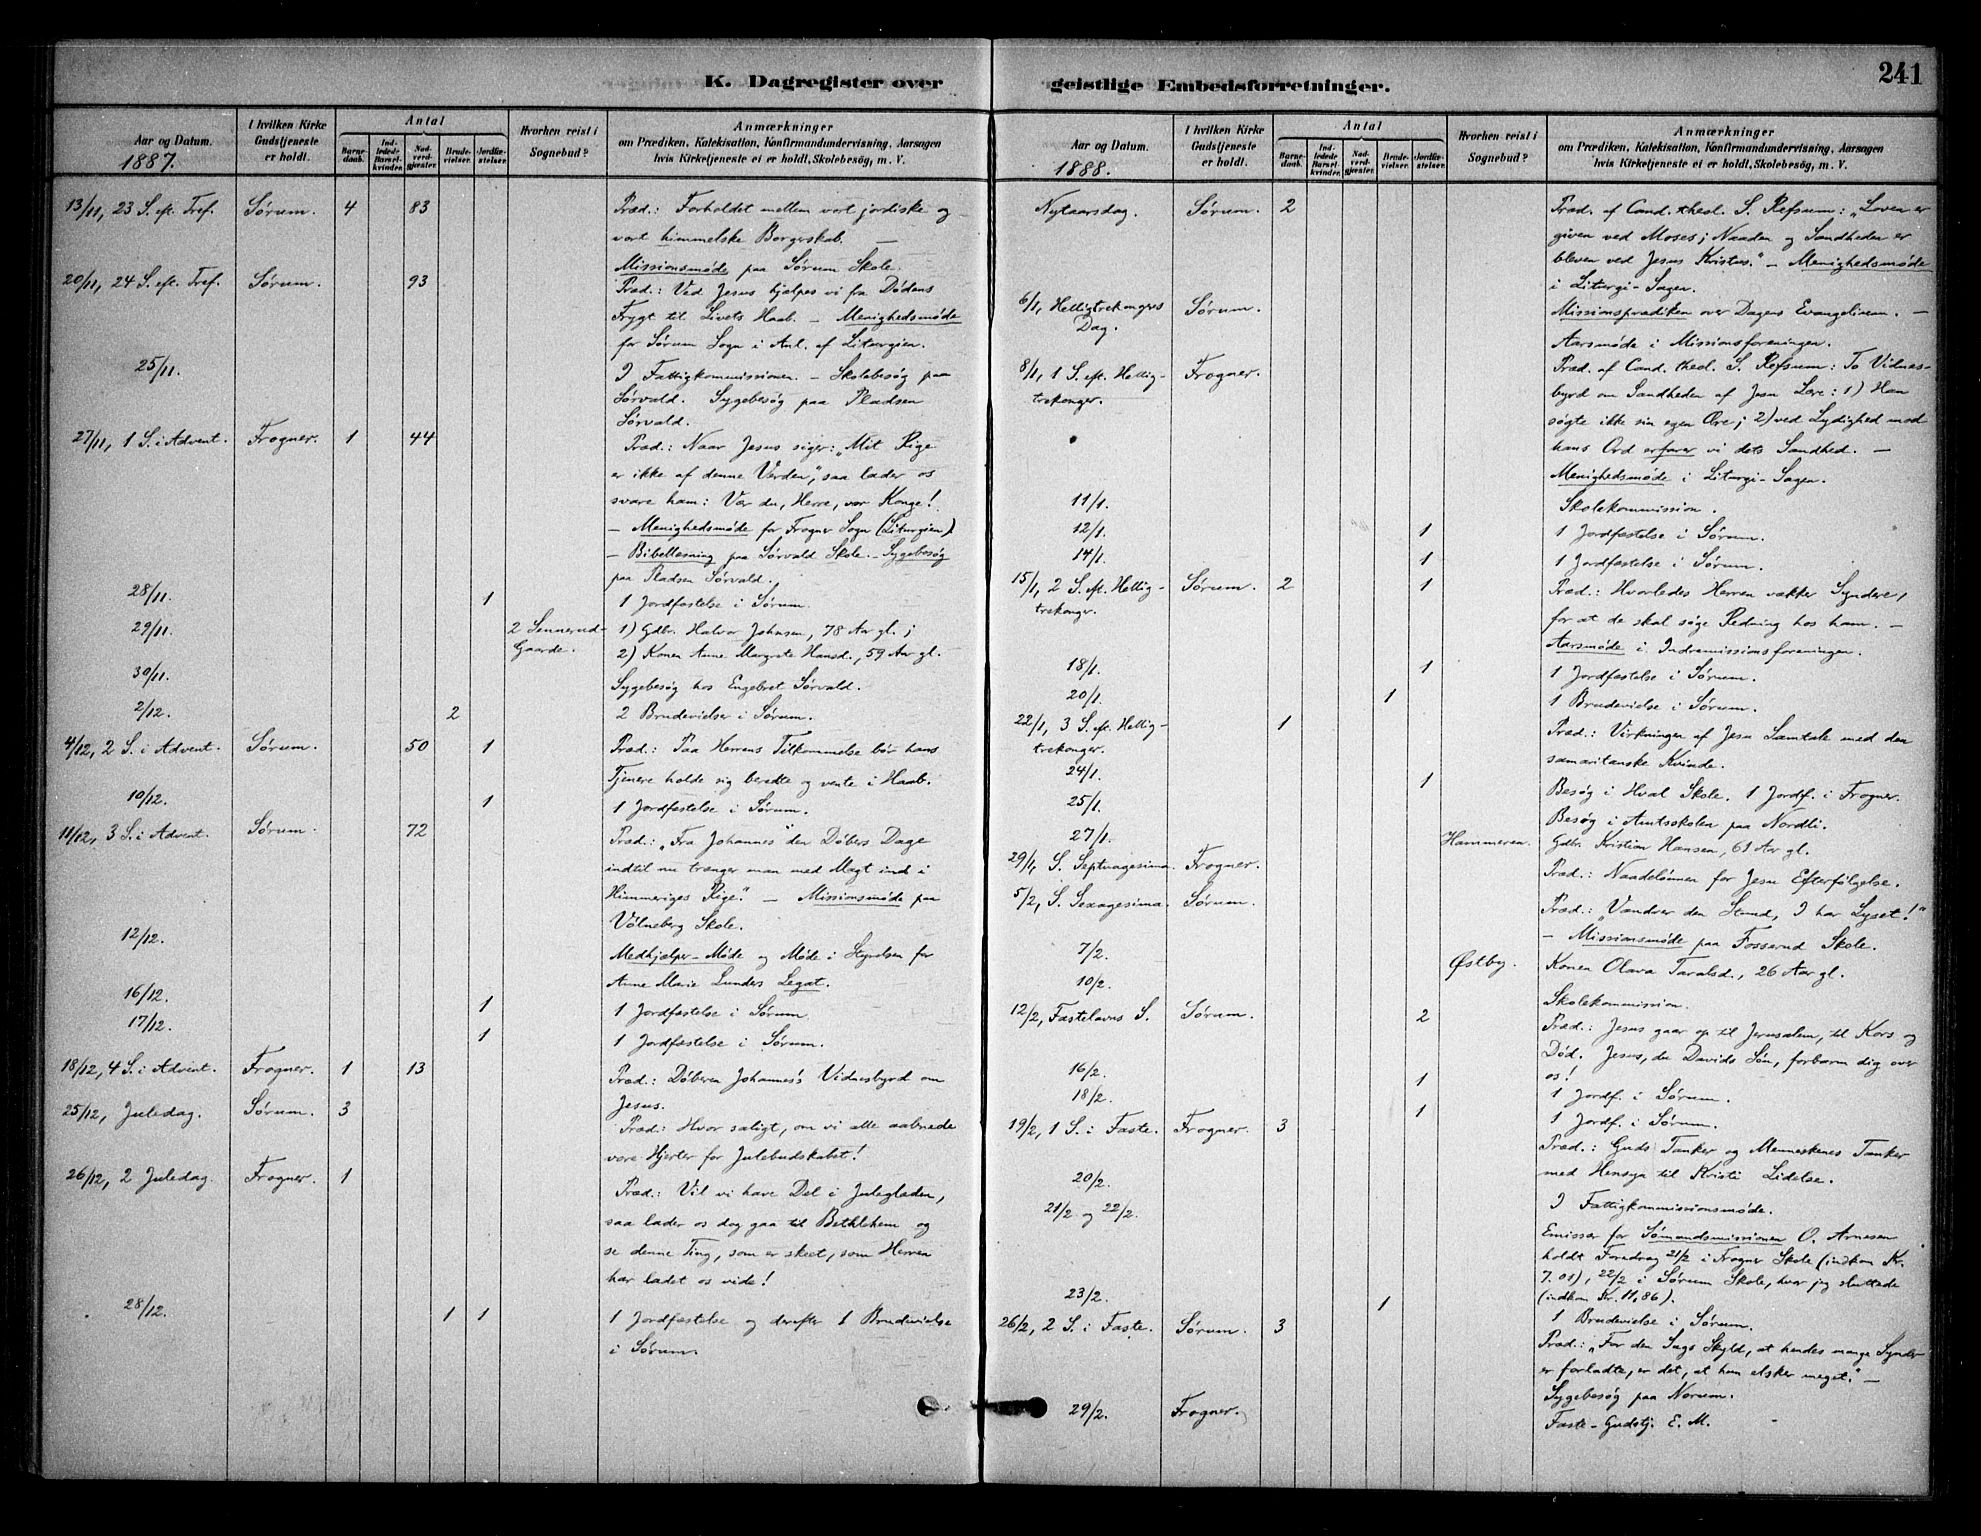 K. Dagregister over
geistlige Embedsforretninger.
241
Aar og Datum.
1887.
I hvilken Kirke Gudstjeneste er holdt.
Antal
Barnedaab.
Indledede Barselkvinder.
Nadverdgjæster.
Brudevielser.
Jordfæstelser.
Hvorhen reist i Sognebud?
Anmærkninger
om Prædiken, Katekisation, Konfirmandundervisning, Aarsagen
hvis Kirketjeneste ei er holdt, Skolebesøg, m. V.
13/11, 23 S. eft. Tref. Sørum. 4 83 Præd.: Forholdet mellem vort jordiske og
vort himmelske Borgerskab. —
Missionsmøde paa Sørum Skole.
20/11, 24 S. eft. Tref. Sørum. 93 Præd.: Ved Jesus hjælpes vi fra Dødens
Frygt til Livets Haab. — Menighedsmøde
for Sørum Sogn i Anl. af Liturgien.
25/11. I Fattigkommissionen. — Skolebesøg paa
Sørvald. Sygebesøg paa Pladsen
Sørvald.
27/11, 1 S. i Advent. Frogner. 1 44 Præd.: Naar Jesus siger: „Mit Rige
er ikke af denne Verden", saa lader os
svare ham: Vær du, Herre, vor Konge!
— Menighedsmøde for Frogner Sogn (Liturgien).
— Bibellæsning paa Sørvald Skole. — Sygebesøg
paa Pladsen Sørvald.
28/11. 1 1 Jordfæstelse i Sørum.
29/11. 2 Sennerud- 1) Gdbr. Halvor Johnsen, 78 Aar gl.;
Gaarde. 2) Konen Anne Margrete Hansd., 59 Aar gl.
30/11. Sygebesøg hos Engebret Sørvald.
2/12. 2 2 Brudevielser i Sørum.
4/12, 2 S. i Advent. Sørum. 50 1 Præd.: Paa Herrens Tilkommelse bør hans
Tjenere holde sig beredte og vente i Haab.
10/12. 1 1 Jordfæstelse i Sørum.
11/12, 3 S. i Advent. Sørum. 72 Præd.: „Fra Johannes den Døbers Dage
indtil nu trænger man med Magt ind i
Himmeriges Rige." — Missionsmøde paa
Vølneberg Skole.
12/12. Medhjælper-Møde og Møde i Styrelsen for
Anne Marie Lunders Legat.
16/12. 1 1 Jordfæstelse i Sørum.
17/12. 1 1 Jordfæstelse i Sørum.
18/12, 4 S. i Advent. Frogner. 1 13 Præd.: Døberen Johannes's Vidnesbyrd om
Jesus.
25/12, Juledag. Sørum. 3 Præd.: Hvor saligt, om vi alle aabnede
vore Hjerter for Julebudskabet!
26/12, 2 Juledag. Frogner. 1 Præd.: Vil vi have Del i Juleglæden,
saa lader os dog gaa til Bethlehem og
se denne Ting, som er skeet, som Herren
har ladet os vide!
28/12. 1 1 1 Jordfæstelse og derefter 1 Brudevielse
i Sørum.
Aar og Datum.
1888.
I hvilken Kirke Gudstjeneste er holdt.
Antal
Barnedaab.
Indledede Barselkvinder.
Nadverdgjæster.
Brudevielser.
Jordfæstelser.
Hvorhen reist i Sognebud?
Anmærkninger
om Prædiken, Katekisation, Konfirmandundervisning, Aarsagen
hvis Kirketjeneste ei er holdt, Skolebesøg, m. V.
Nytaarsdag. Sørum. 2 Præd. af Cand. theol. S. Refsum: „Loven er
given ved Moses; Naaden og Sandheden er
bleven ved Jesus Kristus." — Menighedsmøde
i Liturgi-Sagen.
6/1, Helligtrekongers Dag. Sørum. Missionsprædiken over Dagens Evangelium. —
Aarsmøde i Missionsforeningen.
8/1, 1 S. eft. Hellig- Frogner. Præd. af Cand. theol. S. Refsum: To Vidnes-
trekonger. byrd om Sandheden af Jesu Lære: 1) Han
søgte ikke sin egen Ære; 2) ved Lydighed mod
hans Ord erfarer vi dets Sandhed. —
Menighedsmøde i Liturgi-Sagen.
11/1. Skolekommission.
12/1. 1 1 Jordfæstelse i Sørum.
14/1. 1 1 Jordfæstelse i Sørum.
15/1, 2 S. eft. Hellig- Sørum. 2 1 Præd.: Hvorledes Herren vækker Syndere,
trekonger. for at de skal søge Redning hos ham. —
Aarsmøde i Indremissionsforeningen.
18/1. 1 1 Jordfæstelse i Sørum.
20/1. 1 1 Brudevielse i Sørum.
22/1, 3 S. eft. Hellig- 1 Præd.: Virkningen af Jesu Samtale med den
trekonger. samaritanske Kvinde.
24/1. 1 Besøg i Hval Skole. 1 Jordf. i Frogner.
25/1. Besøg i Amtsskolen paa Nordli.
27/1. Hammeren. Gdbr. Kristian Hansen, 61 Aar gl.
29/1, S. Septuagesima. Frogner. Præd.: Naadelønnen for Jesu Efterfølgelse.
5/2, S. Sexagesima. Sørum. Præd.: „Vandrer den Stund, I har Lyset!"
— Missionsmøde paa Fosserud Skole.
7/2. Østby. Konen Olava Taralsd., 26 Aar gl.
10/2. Skolekommission.
12/2, Fastelavns S. Sørum. 2 Præd.: Jesus gaar op til Jerusalem, til Kors og
Død. Jesus, du Davids Søn, forbarm dig over
os!
16/2. 1 1 Jordf. i Sørum.
18/2. 1 1 Jordf. i Sørum.
19/2, 1 S. i Faste. Frogner. 3 Præd.: Guds Tanker og Menneskenes Tanker
med Hensyn til Kristi Lidelse.
20/2. I Fattigkommissionsmøde.
21/2 og 22/2. Emissær for Sømandsmissionen O. Arnesen
holdt Foredrag 21/2 i Frogner Skole (indkom Kr.
7.01), 22/2 i Sørum Skole, hvor jeg sluttede
(indkom Kr. 11,86).
23/2. 1 1 Brudevielse i Sørum.
26/2, 2 S. i Faste. Sørum. 3 Præd.: „For den Sags Skyld, at hendes mange Synder
er forladte, er det, at hun elsker meget." —
Sygebesøg paa Norum.
29/2. Frogner. Faste-Gudstj. E. M.